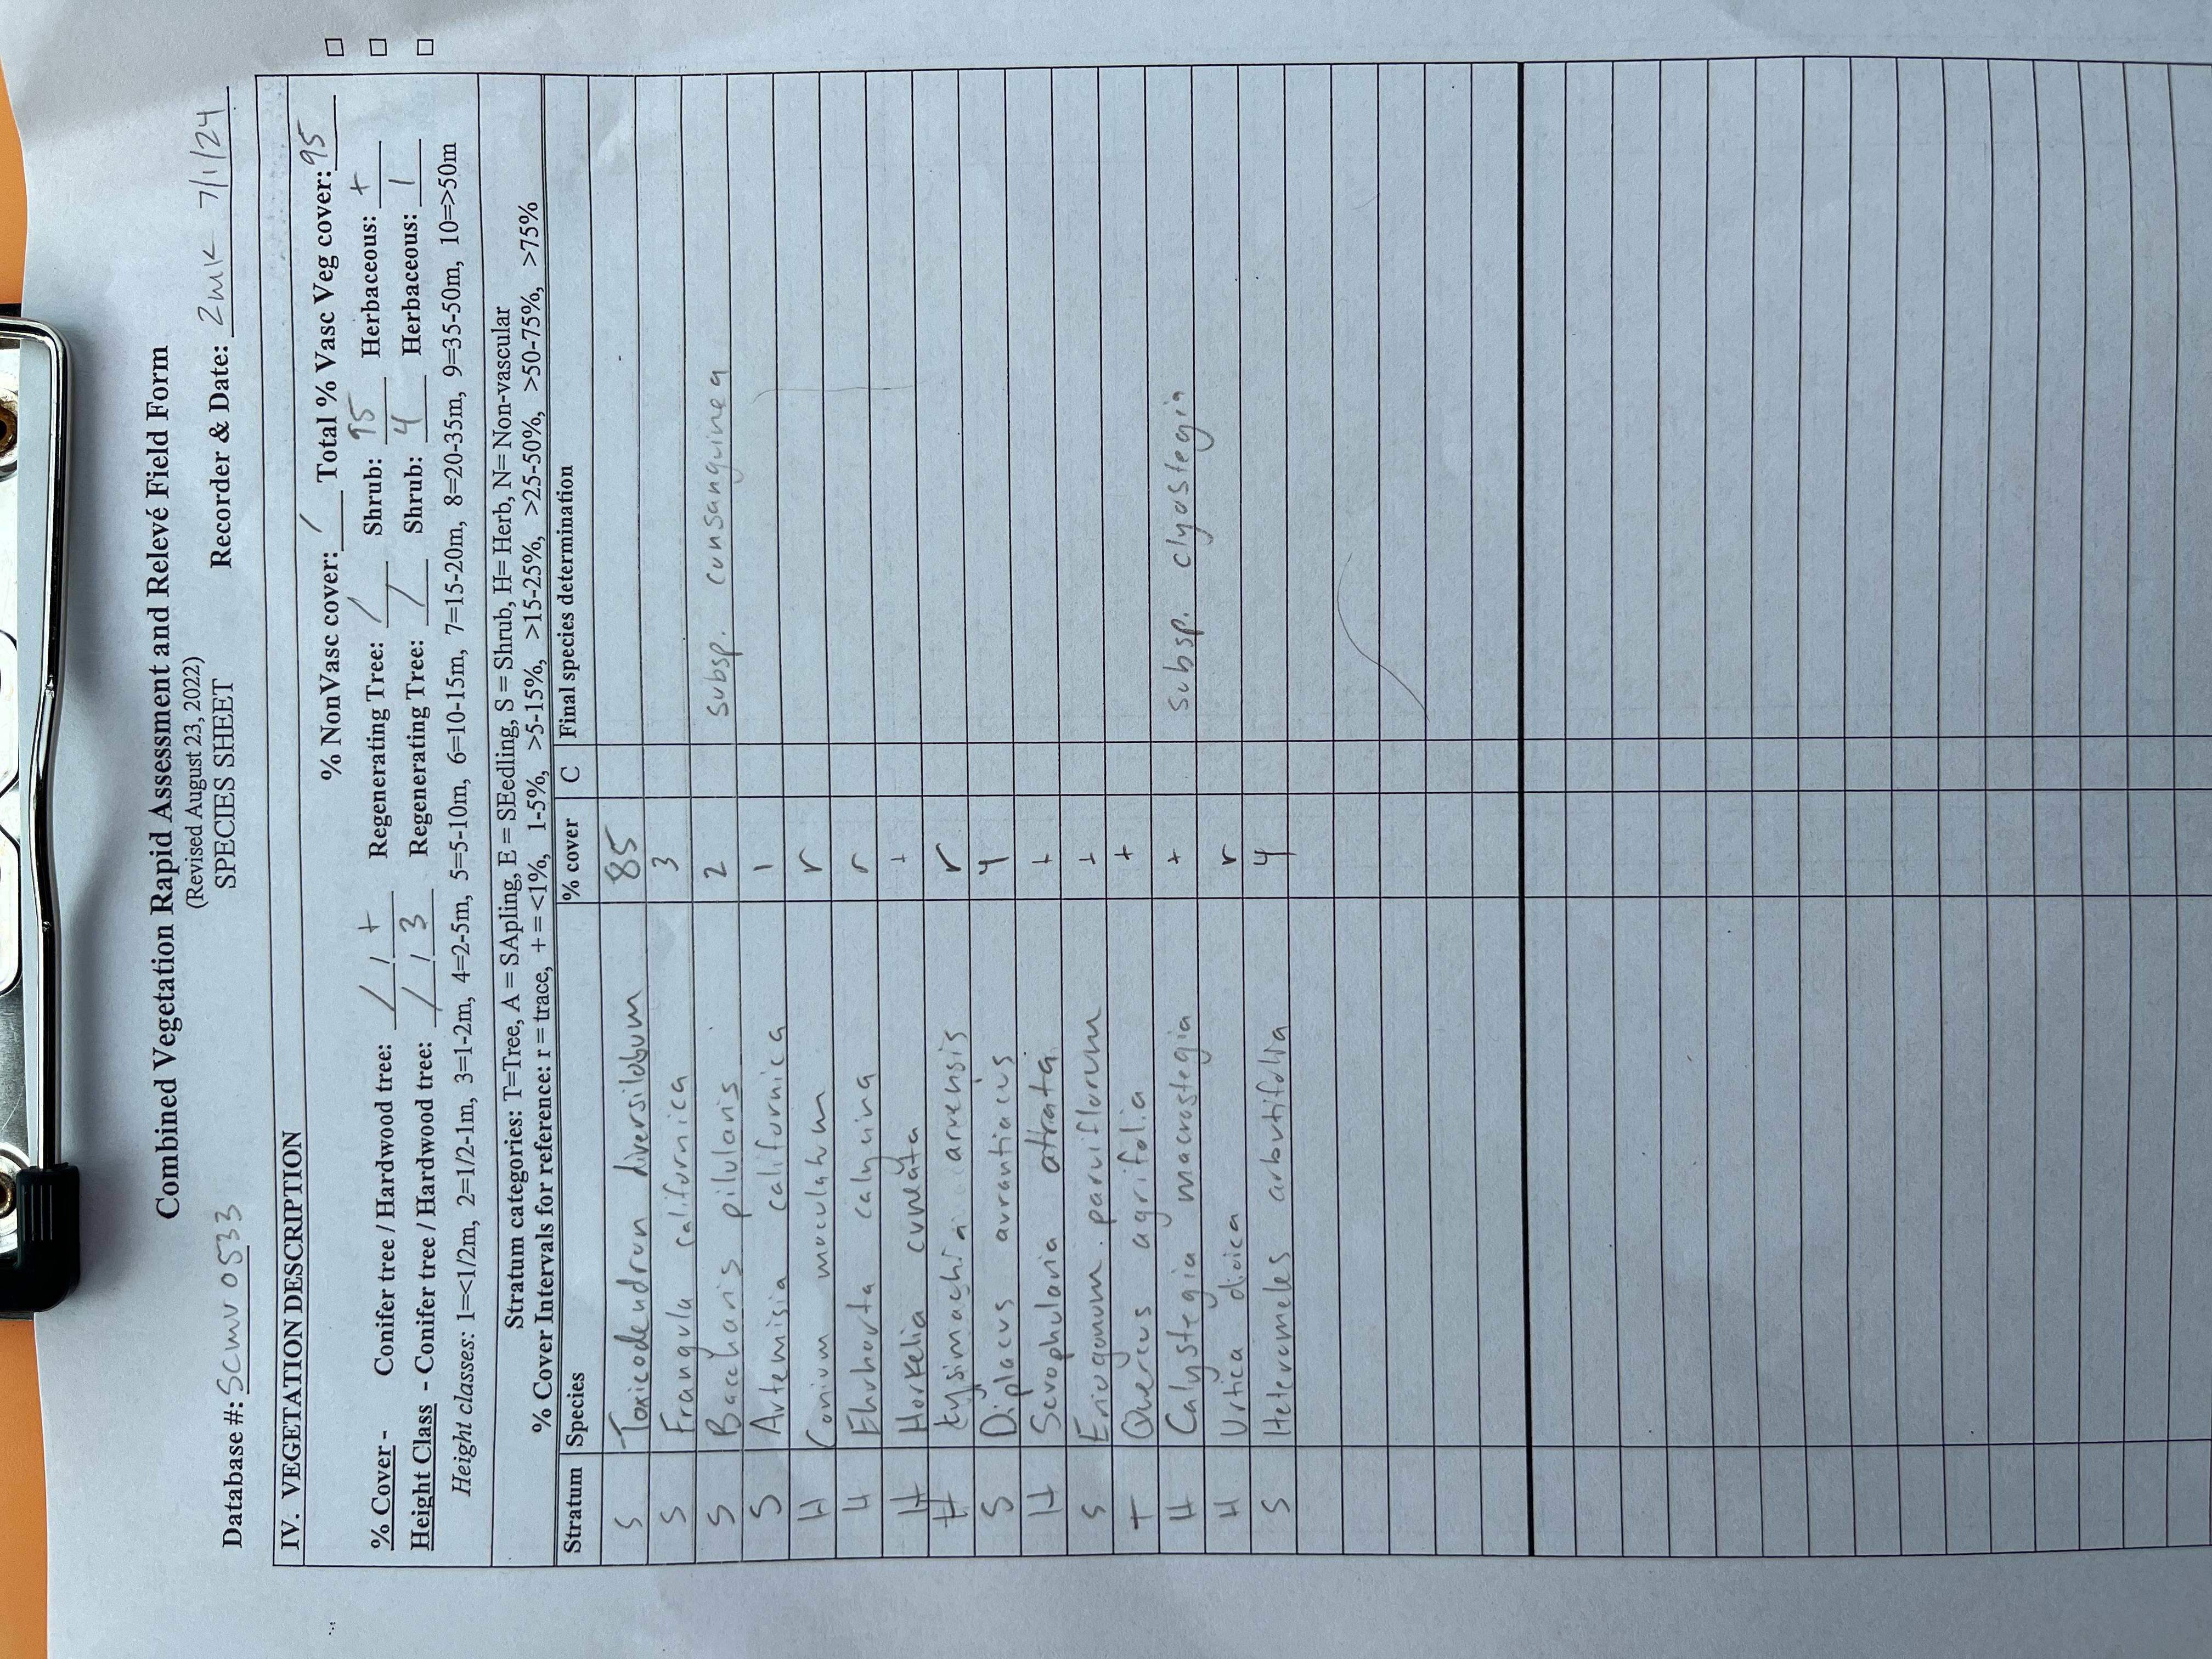 Combined Vegetation Rapid Assessment and Relevé Field Form
(Revised August 23, 2022)
SPECIES SHEET
Database #: Scmv0533 Recorder & Date: ZMK 7/1/24
IV. VEGETATION DESCRIPTION
% NonVasc cover: / Total % Vasc Veg cover: 95
% Cover - Conifer tree / Hardwood tree: / / + Regenerating Tree: / Shrub: 95 Herbaceous: +
Height Class - Conifer tree / Hardwood tree: / / 3 Regenerating Tree: / Shrub: 4 Herbaceous: 1
Height classes: 1=<1/2m, 2=1/2-1m, 3=1-2m, 4=2-5m, 5=5-10m, 6=10-15m, 7=15-20m, 8=20-35m, 9=35-50m, 10=>50m
Stratum categories: T=Tree, A = SApling, E = SEedling, S = Shrub, H= Herb, N= Non-vascular
% Cover Intervals for reference: r = trace, + = <1%, 1-5%, >5-15%, >15-25%, >25-50%, >50-75%, >75%
Stratum Species % cover C Final species determination
S Toxicodendron diversilobum 85
S Frangula californica 3
S Baccharis pilularis 2 subsp. consanguinea
S Artemisia californica 1
H Conium maculatum r
H Ehrharta calycina r
H Horkelia cuneata +
H Lysimachia arvensis r
S Diplacus aurantiacus 4
H Scrophularia atrata +
S Eriogonum parviflorum +
T Quercus agrifolia +
H Calystegia macrostegia + subsp. clyostegia
H Urtica dioica r
S Heteromeles arbutifolia 4